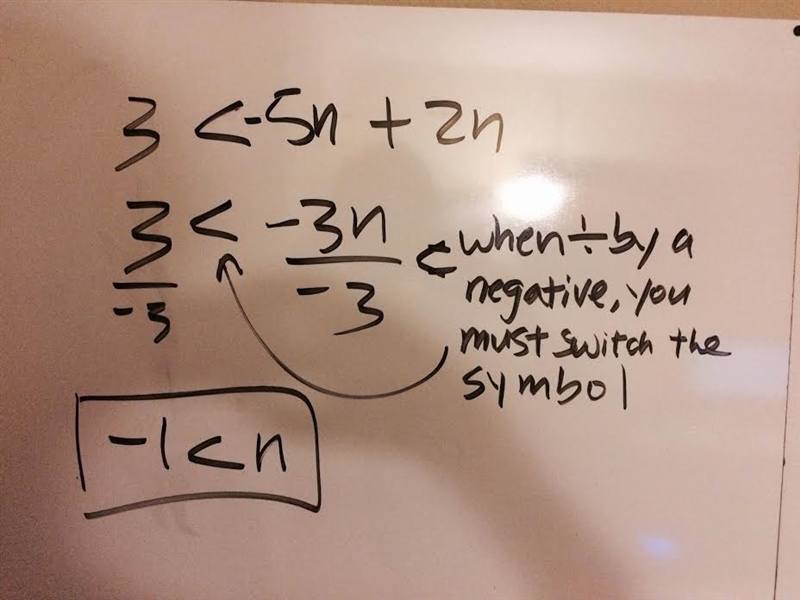 3 < -5n + 2n
3 < -3n
-3 -3
< when ÷ by a
negative, you
must switch the
symbol
-1 < n